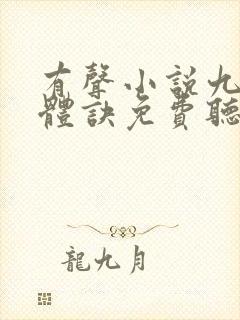 有聲小説九
體訣免費聽
龍九月